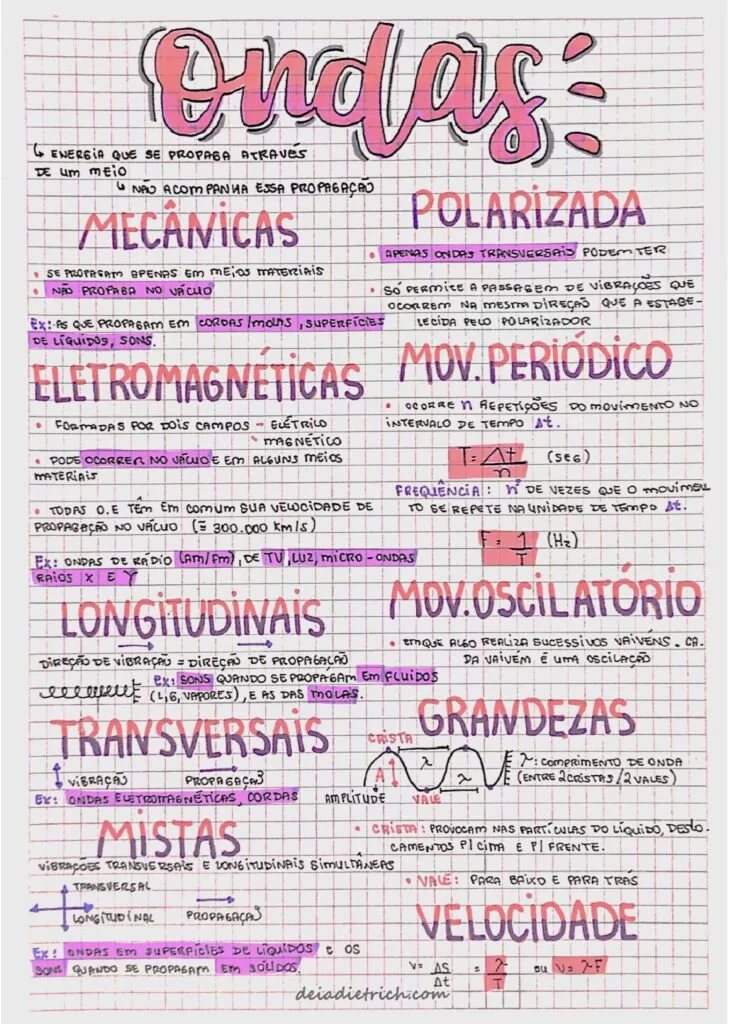 Ondas
↳ ENERGIA QUE SE PROPAGA ATRAVÉS
DE UM MEIO
↳ NÃO ACOMPANHA ESSA PROPAGAÇÃO
MECÂNICAS
• SE PROPAGAM APENAS EM MEIOS MATERIAIS
• NÃO PROPAGA NO VÁCUO
Ex: AS QUE PROPAGAM EM CORDAS/MOLAS, SUPERFÍCIES
DE LÍQUIDOS, SONS.
ELETROMAGNÉTICAS
• FORMADAS POR DOIS CAMPOS - ELÉTRICO
MAGNÉTICO
• PODE OCORRER NO VÁCUO E EM ALGUNS MEIOS
MATERIAIS
• TODAS O.E TÊM EM COMUM SUA VELOCIDADE DE
PROPAGAÇÃO NO VÁCUO (≅ 300.000 Km/s)
Ex: ONDAS DE RÁDIO (AM/FM), DE TV, LUZ, MICRO-ONDAS
RAIOS X E γ
LONGITUDINAIS
DIREÇÃO DE VIBRAÇÃO = DIREÇÃO DE PROPAGAÇÃO
Ex: SONS QUANDO SE PROPAGAM EM FLUIDOS
(L, G, VAPORES), E AS DAS MOLAS.
TRANSVERSAIS
VIBRAÇÃO PROPAGAÇÃO
Ex: ONDAS ELETROMAGNÉTICAS, CORDAS
MISTAS
VIBRAÇÕES TRANSVERSAIS E LONGITUDINAIS SIMULTÂNEAS
TRANSVERSAL
LONGITUDINAL PROPAGAÇÃO
Ex: ONDAS EM SUPERFÍCIES DE LÍQUIDOS E OS
SONS QUANDO SE PROPAGAM EM SÓLIDOS.
POLARIZADA
• APENAS ONDAS TRANSVERSAIS PODEM TER
• SÓ PERMITE A PASSAGEM DE VIBRAÇÕES QUE
OCORREM NA MESMA DIREÇÃO QUE A ESTABE-
LECIDA PELO POLARIZADOR
MOV. PERIÓDICO
• OCORRE n REPETIÇÕES DO MOVIMENTO NO
INTERVALO DE TEMPO Δt.
T = Δt/n (SEG)
FREQUÊNCIA: nº DE VEZES QUE O MOVIMEN
TO SE REPETE NA UNIDADE DE TEMPO Δt.
F = 1/T (Hz)
MOV. OSCILATÓRIO
• EM QUE ALGO REALIZA SUCESSIVOS VAIVÉNS. CA.
DA VAIVÉM É UMA OSCILAÇÃO
GRANDEZAS
CRISTA
λ
λ: COMPRIMENTO DE ONDA
A λ (ENTRE 2 CRISTAS/2 VALES)
AMPLITUDE VALE
• CRISTA: PROVOCAM NAS PARTÍCULAS DO LÍQUIDO, DESLO-
CAMENTOS P/ CIMA E P/ FRENTE.
• VALE: PARA BAIXO E PARA TRÁS
VELOCIDADE
V = ΔS/Δt = λ/T ou V = λ·F
deiadietrich.com